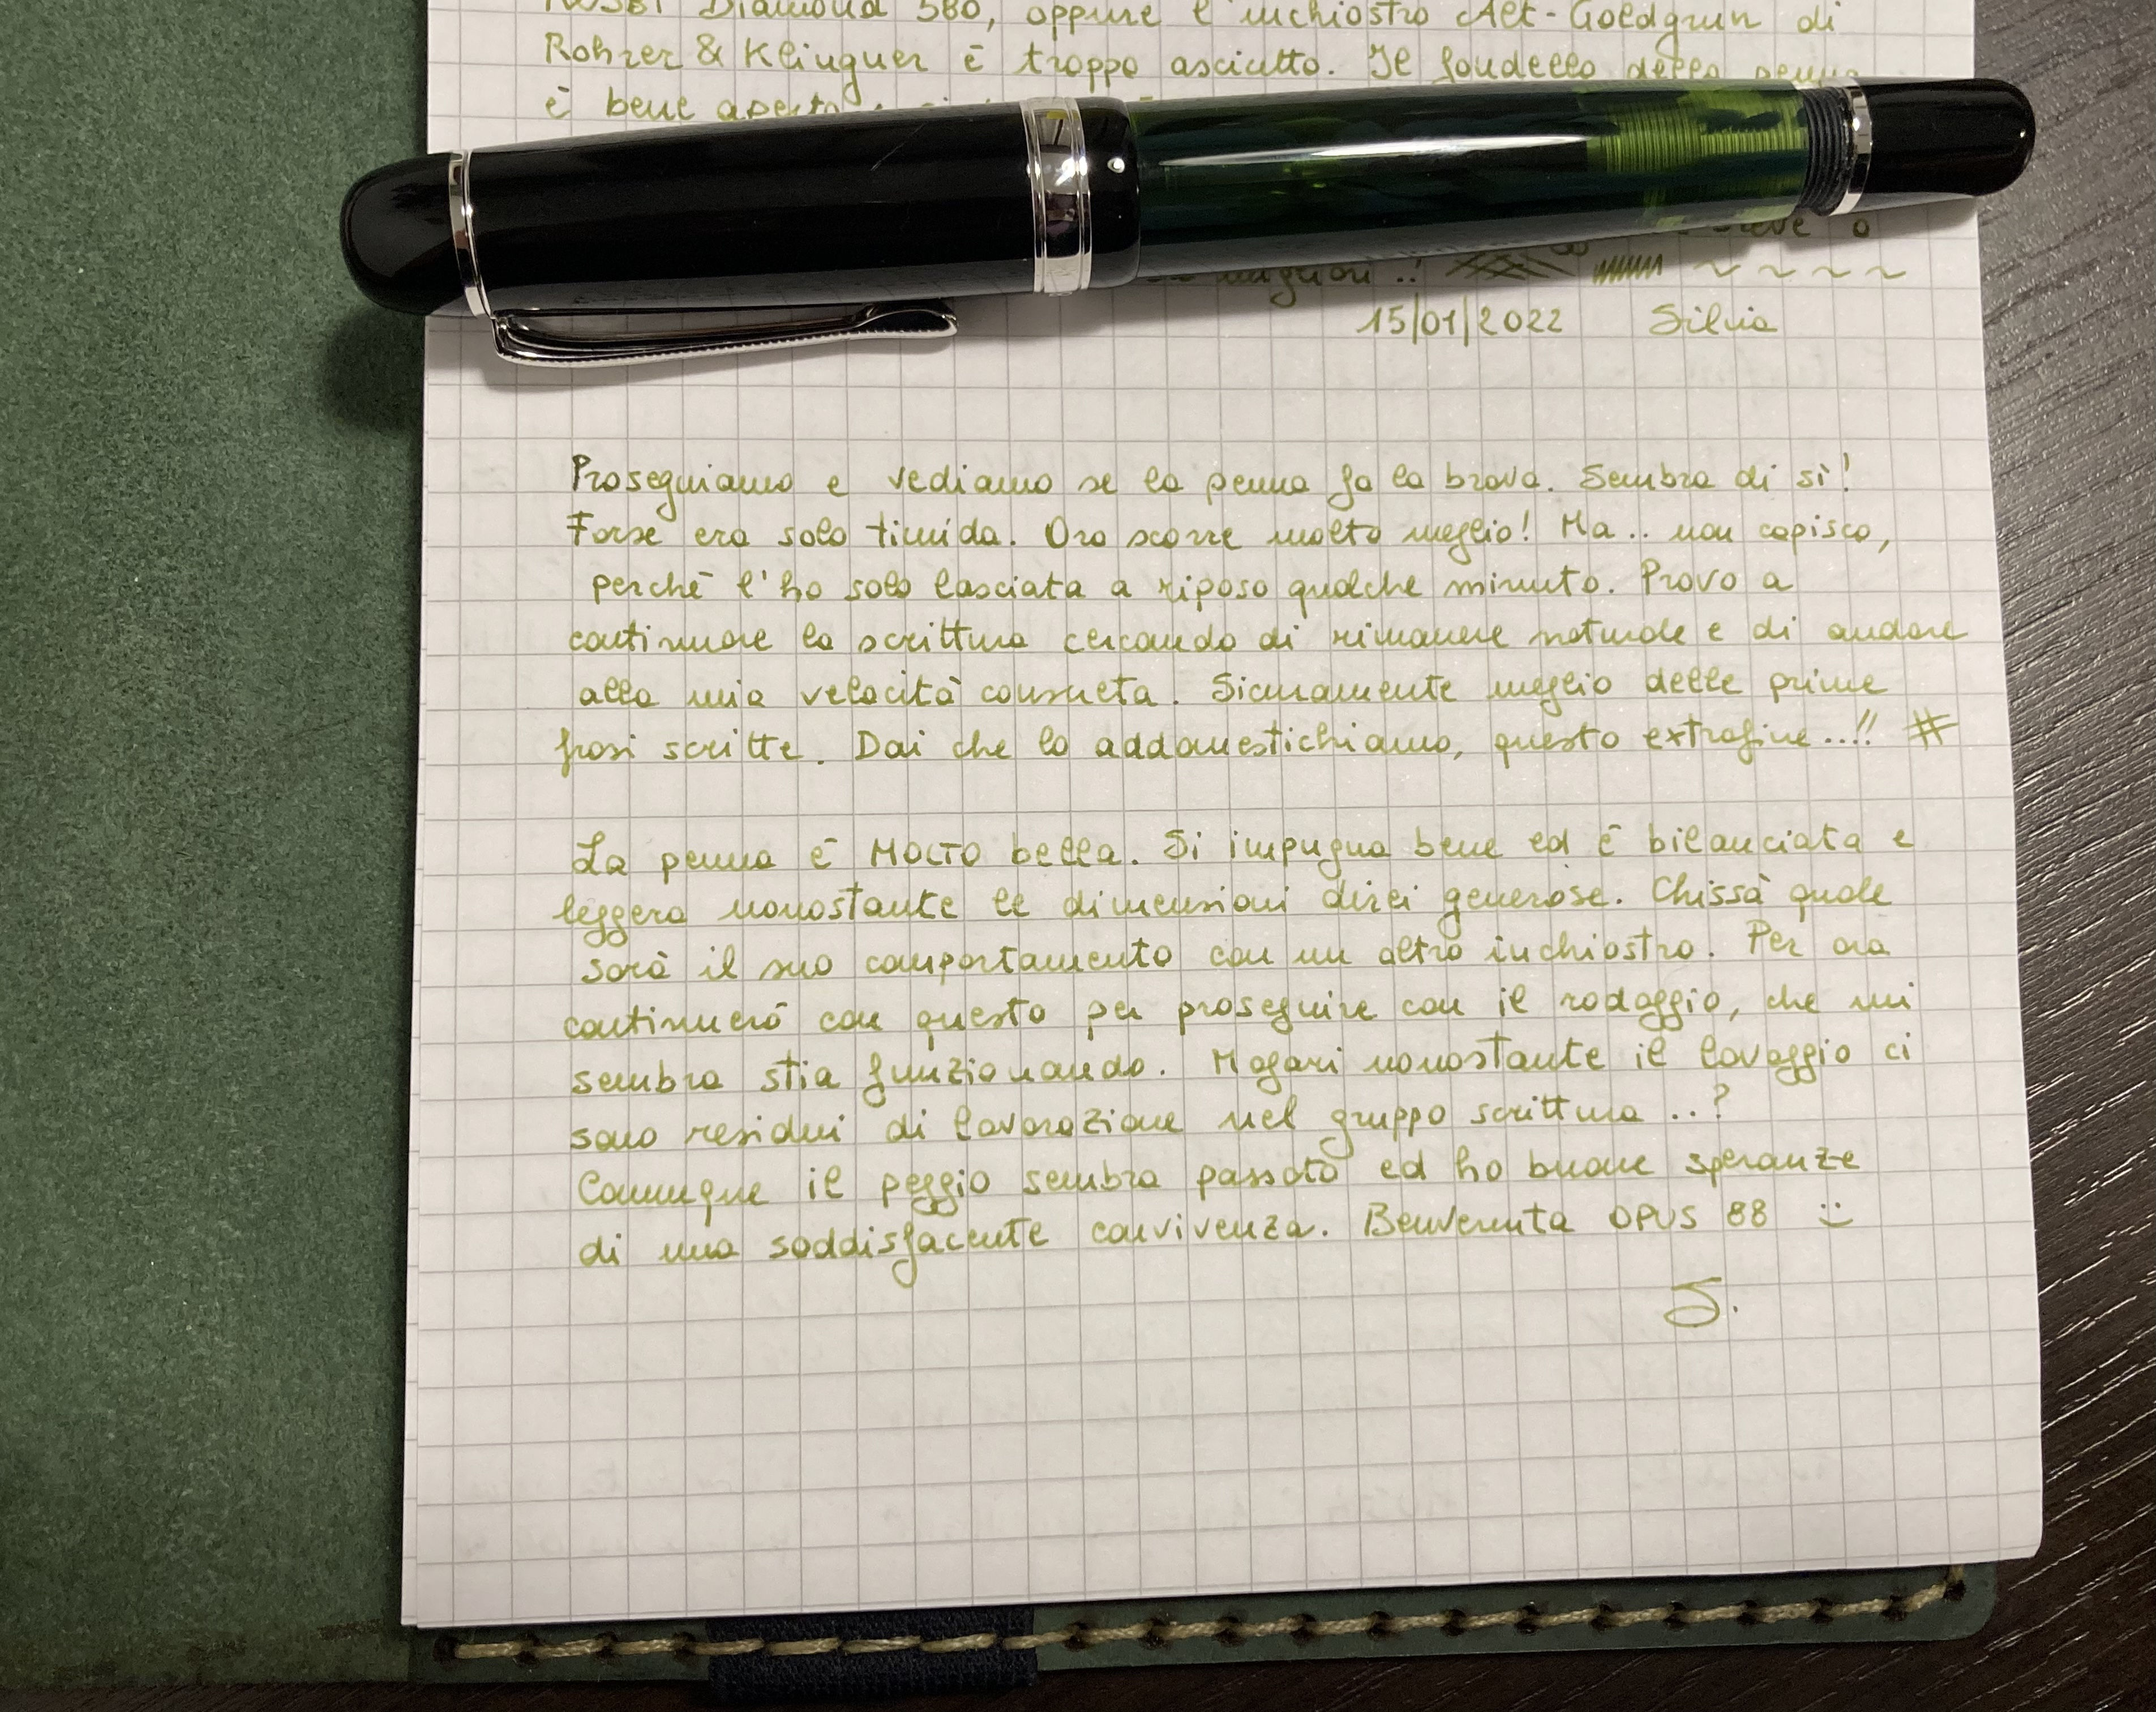 Diamond 580, oppure l'inchiostro Alt-Goldgrun di
Rohrer & Klinguer è troppo asciutto. Il fondello della penna
è bene aperto
o
migliori ..!
15/01/2022 Silvia
Proseguiamo e vediamo se la penna fa la brava. Sembra di sì!
Forse era solo timida. Ora scorre molto meglio! Ma.. non capisco,
perchè l'ho solo lasciata a riposo qualche minuto. Provo a
continuare la scrittura cercando di rimanere naturale e di andare
alla mia velocità consueta. Sicuramente meglio delle prime
frasi scritte. Dai che lo addomestichiamo, questo extrafine...!! #
La penna è MOLTO bella. Si impugna bene ed è bilanciata e
leggera nonostante le dimensioni direi generose. Chissà quale
sarà il suo comportamento con un altro inchiostro. Per ora
continuerò con questo per proseguire con il rodaggio, che mi
sembra stia funzionando. Magari nonostante il lavaggio ci
sono residui di lavorazione nel gruppo scrittura ..?
Comunque il peggio sembra passato ed ho buone speranze
di una soddisfacente convivenza. Benvenuta OPUS 88 :)
S.